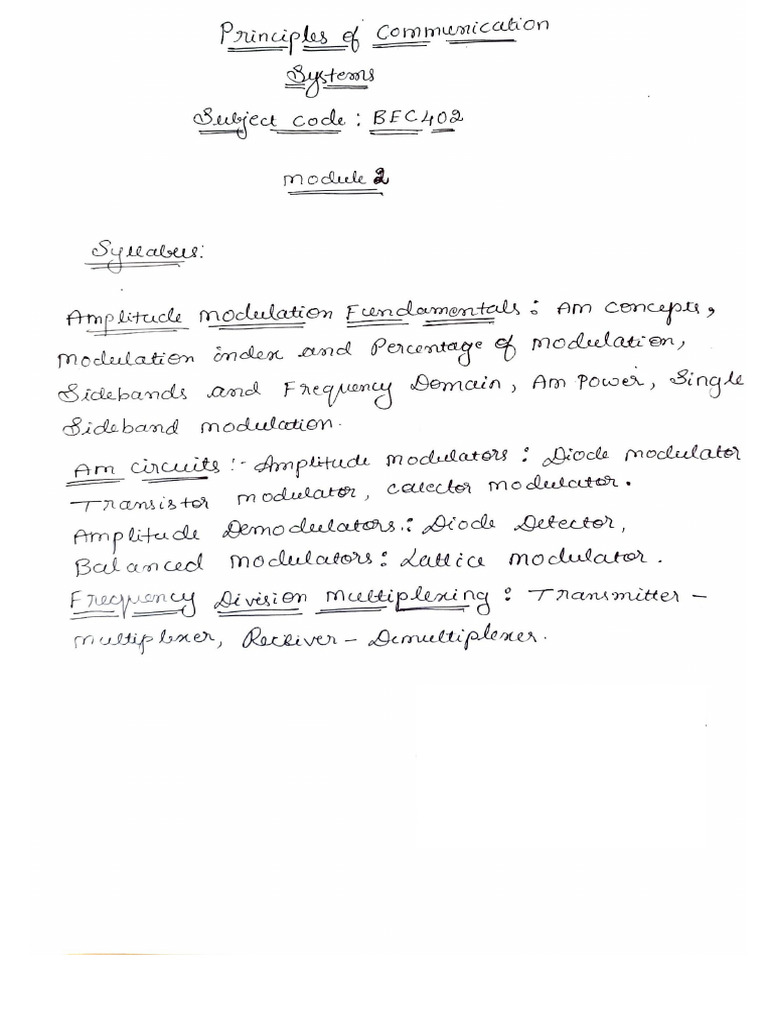 Principles of Communication
Systems
Subject code : BEC402
Module 2
Syllabus:
Amplitude Modulation Fundamentals : AM concepts,
Modulation index and Percentage of Modulation,
Sidebands and Frequency Domain, AM Power, Single
Sideband modulation.
AM circuits :- Amplitude modulators : Diode modulator
Transistor modulator, collector modulator.
Amplitude Demodulators : Diode Detector,
Balanced Modulators : Lattice modulator.
Frequency Division Multiplexing : Transmitter -
Multiplexer, Receiver - Demultiplexer.